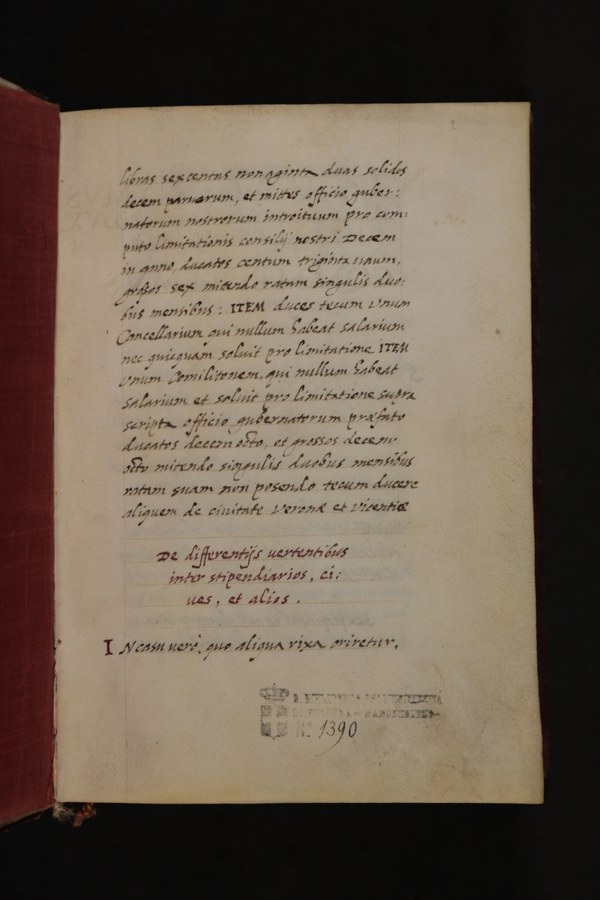 2
libras sexcentas nonaginta duas solidos
decem parvorum, et mittes officio guber:
natorum nostrorum introituum pro com:
puto limitationis consilij nostri Decem
in anno, ducatos centum triginta unum,
grossos sex mitendo ratam singulis duo:
bus mensibus: ITEM duces tecum Vnum
Concellarium qui nullum habeat salarium
nec quicquam solvit pro limitatione ITEM
Vnum Comilitonem, qui nullum habeat
salarium et solvit pro limitatione supra
scripta officio gubernatorum præfato
ducatos decem octo, et grossos decem
octo mitendo singulis duobus mensibus
ratam suam non posendo tecum ducere
aliquem de civitate Veronæ et Vicentiæ
De differentijs vertentibus
inter stipendiarios, ci:
ves, et alios.
IN casu verò, quo aliqua rixa oriretur,
R. BIBLIOTECA
Nº 1390